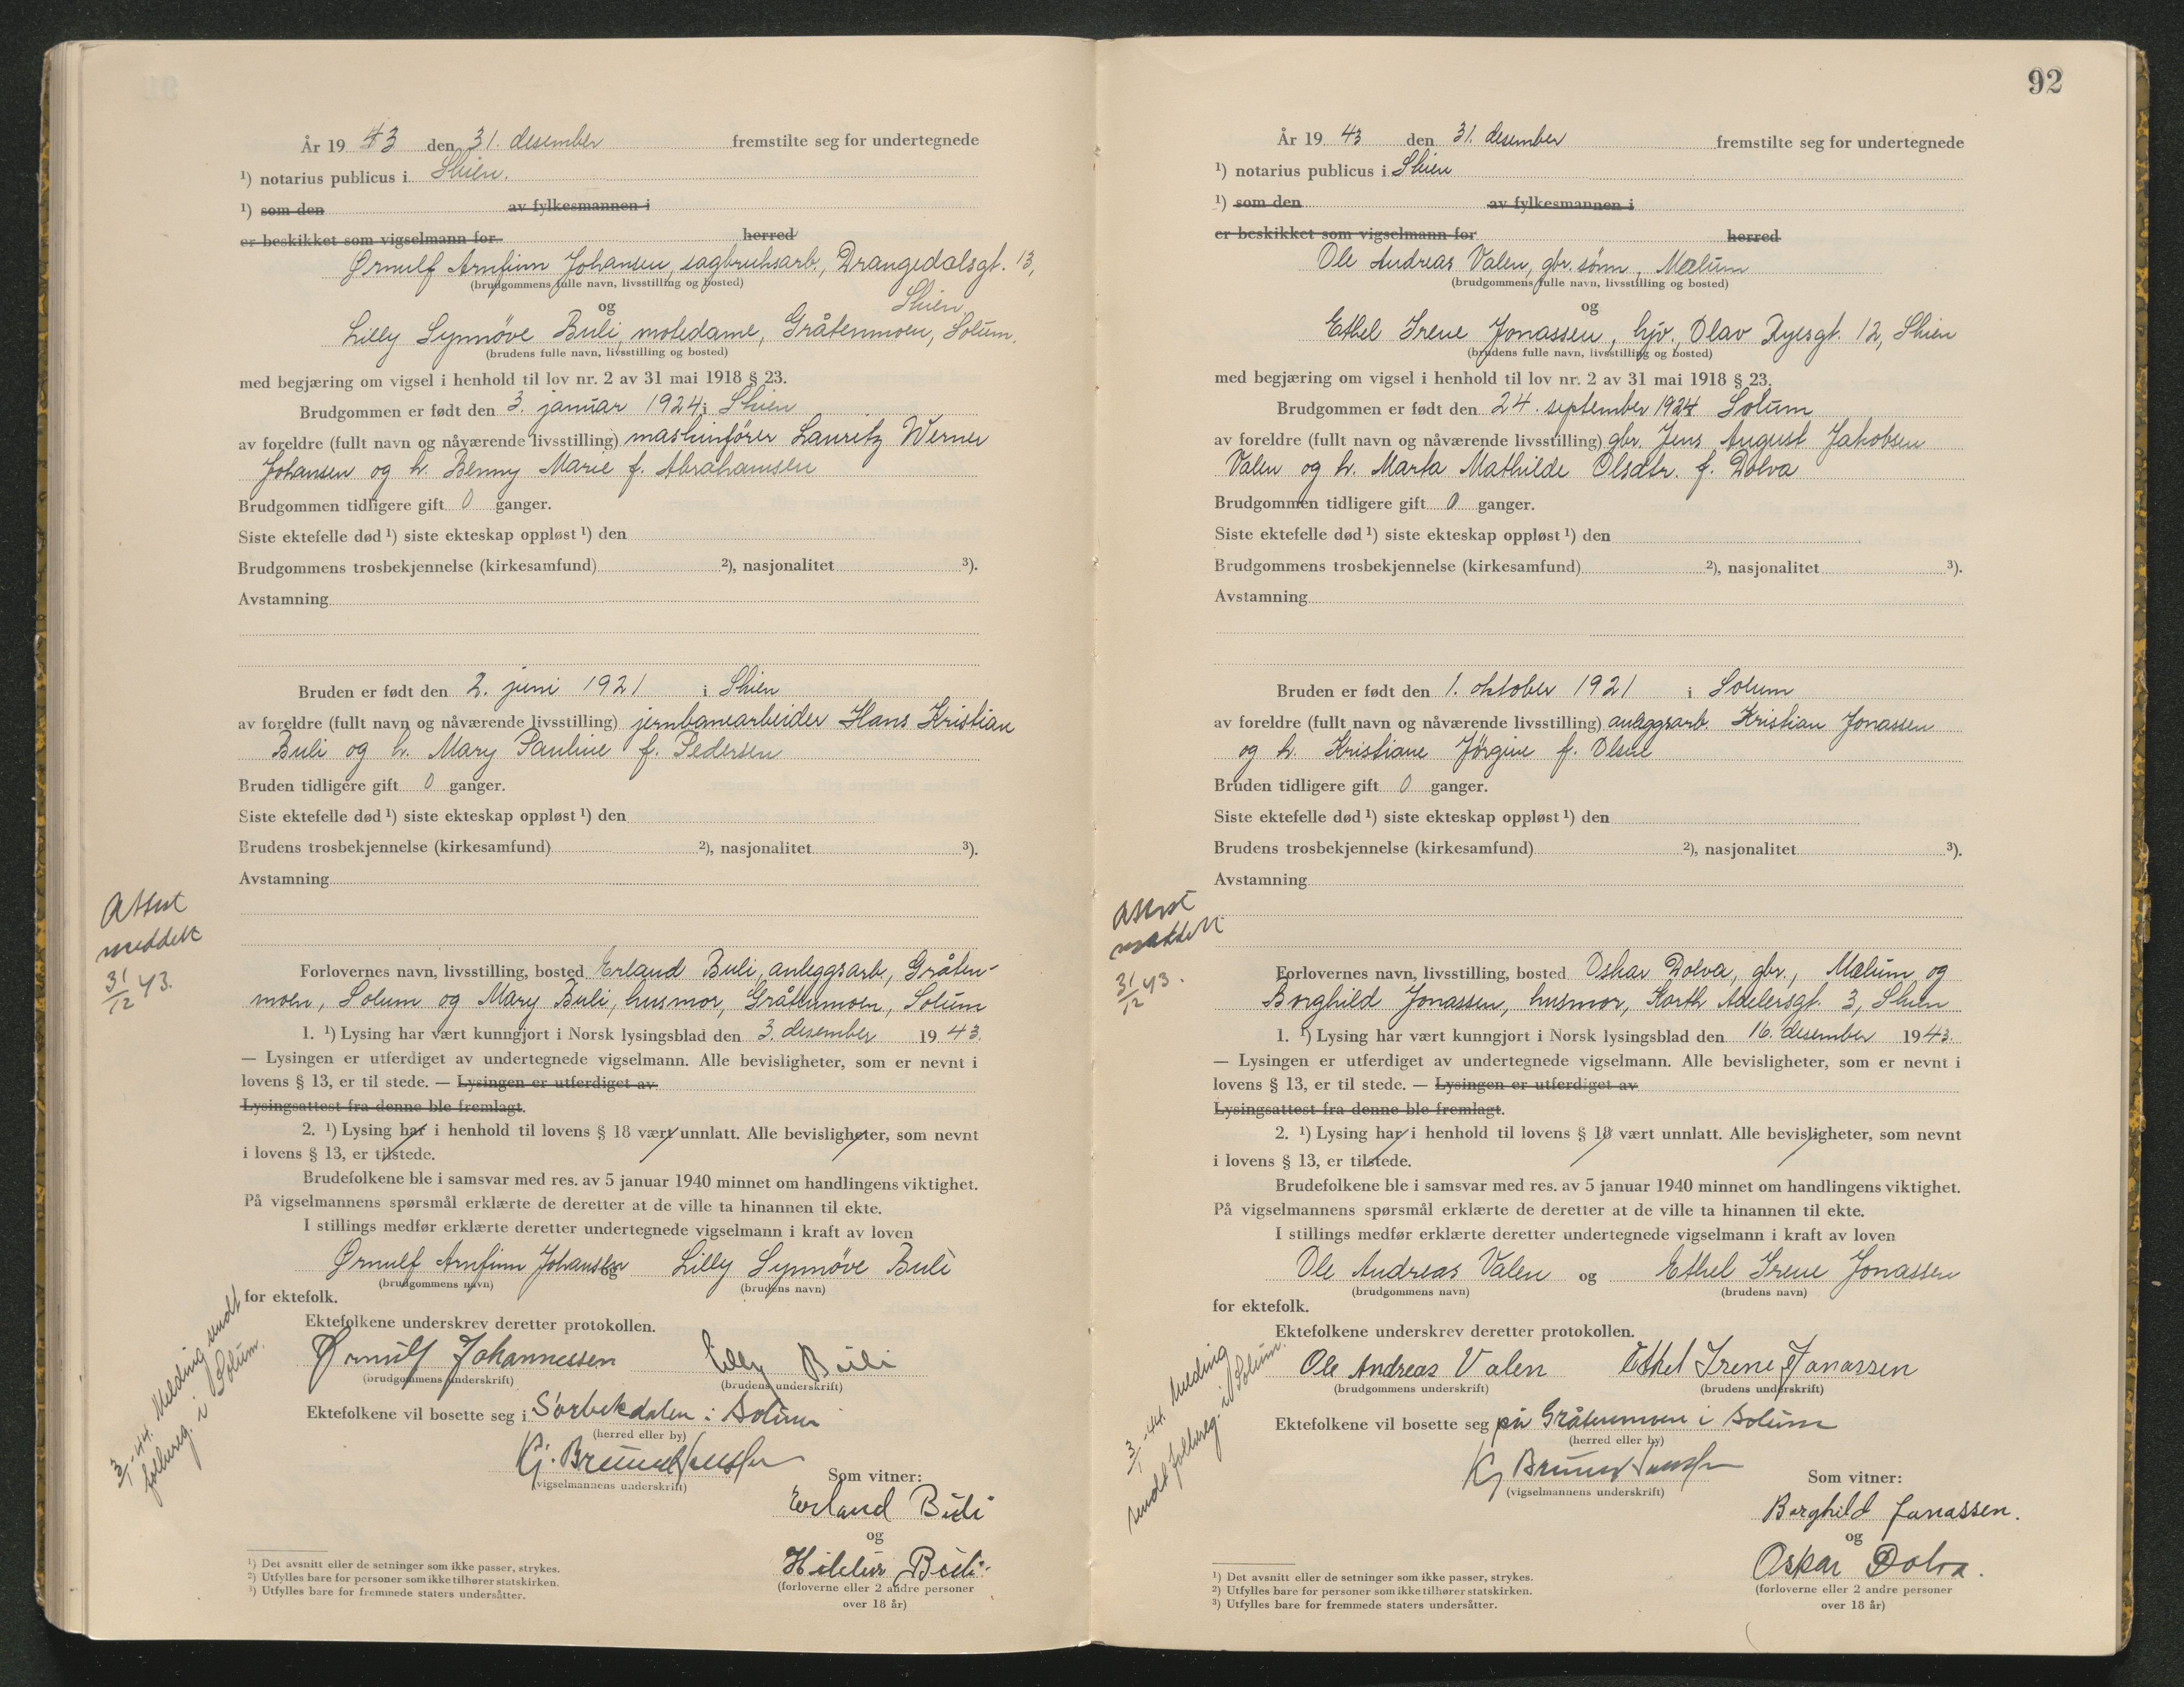 År 19 43 den 31. desember fremstilte seg for undertegnede
¹) notarius publicus i Skien.
¹) som den av fylkesmannen i
er beskikket som vigselmann for herred
Ørnulf Arnfinn Johansen, sagbruksarb., Drangedalsgt. 13,
(brudgommens fulle navn, livsstilling og bosted)
Skien
og
Lilly Synnøve Buli, motedame, Gråtenmoen, Solum.
(brudens fulle navn, livsstilling og bosted)
med begjæring om vigsel i henhold til lov nr. 2 av 31 mai 1918 § 23.
Brudgommen er født den 3. januar 1924 i Skien
av foreldre (fullt navn og nåværende livsstilling) maskinfører Lauritz Werner
Johansen og h. Benny Marie f. Abrahamsen
Brudgommen tidligere gift 0 ganger.
Siste ektefelle død ¹) siste ekteskap oppløst ¹) den
Brudgommens trosbekjennelse (kirkesamfund) ²), nasjonalitet ³).
Avstamning
Bruden er født den 2. juni 1921 i Skien
av foreldre (fullt navn og nåværende livsstilling) jernbanearbeider Hans Kristian
Buli og h. Mary Pauline f. Pedersen
Bruden tidligere gift 0 ganger.
Siste ektefelle død ¹) siste ekteskap oppløst ¹) den
Brudens trosbekjennelse (kirkesamfund) ²), nasjonalitet ³).
Avstamning
Attest
meddelt
31/12 43.
Forlovernes navn, livsstilling, bosted Erland Buli, anleggsarb., Gråten-
moen, Solum og Mary Buli, husmor, Gråtenmoen, Solum
1. ¹) Lysing har vært kunngjort i Norsk lysingsblad den 3. desember 19 43.
— Lysingen er utferdiget av undertegnede vigselmann. Alle bevisligheter, som er nevnt i
lovens § 13, er til stede. — Lysingen er utferdiget av
Lysingsattest fra denne ble fremlagt.
2. ¹) Lysing har i henhold til lovens § 18 vært unnlatt. Alle bevisligheter, som nevnt
i lovens § 13, er tilstede.
Brudefolkene ble i samsvar med res. av 5 januar 1940 minnet om handlingens viktighet.
På vigselmannens spørsmål erklærte de deretter at de ville ta hinannen til ekte.
I stillings medfør erklærte deretter undertegnede vigselmann i kraft av loven
Ørnulf Arnfinn Johansen og Lilly Synnøve Buli
(brudgommens navn) (brudens navn)
for ektefolk.
Ektefolkene underskrev deretter protokollen.
Ørnulf Johannessen Lilly Buli
(brudgommens underskrift) (brudens underskrift)
Ektefolkene vil bosette seg i Sørbekdalen i Solum
(herred eller by)
3/1-44. Melding sendt
folkereg. i Solum.
(vigselmannens underskrift)
Som vitner:
Erland Buli
og
Buli
(forloverne eller 2 andre personer
over 18 år)
¹) Det avsnitt eller de setninger som ikke passer, strykes.
²) Utfylles bare for personer som ikke tilhører statskirken.
³) Utfylles bare for fremmede staters undersåtter.
92
År 19 43 den 31. desember fremstilte seg for undertegnede
¹) notarius publicus i Skien
¹) som den av fylkesmannen i
er beskikket som vigselmann for herred
Ole Andreas Valen, gbr. sønn, Mælum
(brudgommens fulle navn, livsstilling og bosted)
og
Ethel Irene Jonassen, hjv., Olav Ryesgt. 12, Skien
(brudens fulle navn, livsstilling og bosted)
med begjæring om vigsel i henhold til lov nr. 2 av 31 mai 1918 § 23.
Brudgommen er født den 24. september 1924 Solum
av foreldre (fullt navn og nåværende livsstilling) gbr. Jens August Jakobsen
Valen og h. Marta Mathilde Olsdtr. f. Dolva
Brudgommen tidligere gift 0 ganger.
Siste ektefelle død ¹) siste ekteskap oppløst ¹) den
Brudgommens trosbekjennelse (kirkesamfund) ²), nasjonalitet ³).
Avstamning
Bruden er født den 1. oktober 1921 i Solum
av foreldre (fullt navn og nåværende livsstilling) anleggsarb. Kristian Jonassen
og h. Kristiane Jørgine f. Olsen
Bruden tidligere gift 0 ganger.
Siste ektefelle død ¹) siste ekteskap oppløst ¹) den
Brudens trosbekjennelse (kirkesamfund) ²), nasjonalitet ³).
Avstamning
Attest
meddelt
31/12 43.
Forlovernes navn, livsstilling, bosted Oskar Dolva, gbr., Mælum og
Borghild Jonassen, husmor, Korth Adelersgt. 3, Skien
1. ¹) Lysing har vært kunngjort i Norsk lysingsblad den 16. desember 19 43.
— Lysingen er utferdiget av undertegnede vigselmann. Alle bevisligheter, som er nevnt i
lovens § 13, er til stede. — Lysingen er utferdiget av
Lysingsattest fra denne ble fremlagt.
2. ¹) Lysing har i henhold til lovens § 18 vært unnlatt. Alle bevisligheter, som nevnt
i lovens § 13, er tilstede.
Brudefolkene ble i samsvar med res. av 5 januar 1940 minnet om handlingens viktighet.
På vigselmannens spørsmål erklærte de deretter at de ville ta hinannen til ekte.
I stillings medfør erklærte deretter undertegnede vigselmann i kraft av loven
Ole Andreas Valen og Ethel Irene Jonassen
(brudgommens navn) (brudens navn)
for ektefolk.
Ektefolkene underskrev deretter protokollen.
Ole Andreas Valen Ethel Irene Jonassen
(brudgommens underskrift) (brudens underskrift)
Ektefolkene vil bosette seg på Gråtenmoen i Solum
(herred eller by)
3/1-44. Melding
sendt folkereg. i Solum.
(vigselmannens underskrift)
Som vitner:
Borghild Jonassen.
og
Oskar Dolva.
(forloverne eller 2 andre personer
over 18 år)
¹) Det avsnitt eller de setninger som ikke passer, strykes.
²) Utfylles bare for personer som ikke tilhører statskirken.
³) Utfylles bare for fremmede staters undersåtter.